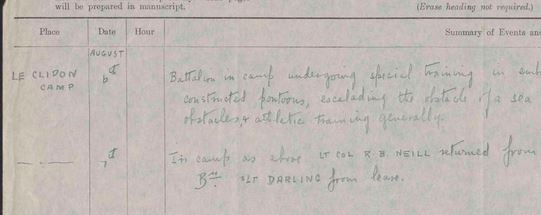 will be prepared in manuscript. (Erase heading not required.)
Place Date Hour Summary of Events and
AUGUST
LE CLIPON CAMP 6th Battalion in camp undergoing special training in emb
constructed pontoons, escalading the obstacle of a sea
obstacles, & athletic training generally.
— — 7th In camp as above LT COL R. B. NEILL returned from
Bde 2LT DARLING from leave.